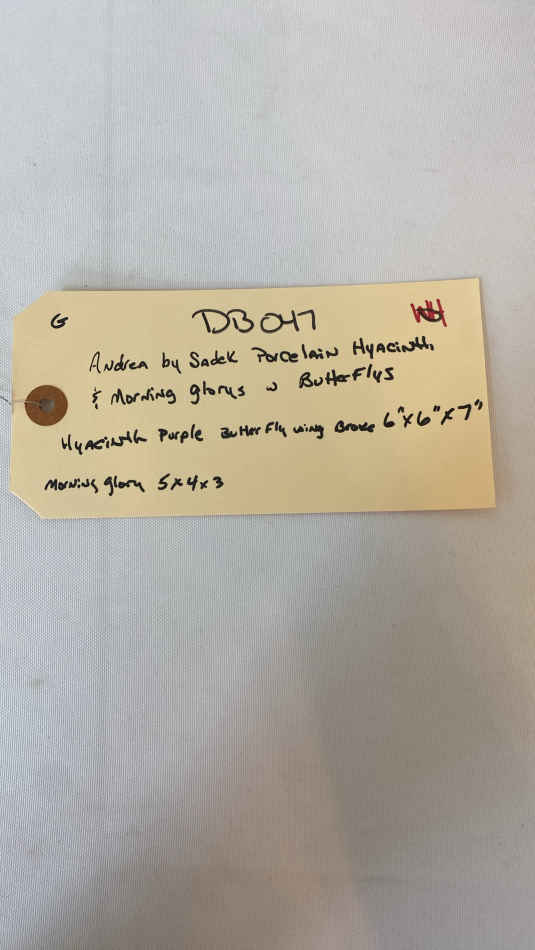 G DB047 WH
Andrea by Sadek Porcelain Hyacinth
& Morning glorys w ButterFlys
Hyacinth Purple ButterFly wing Broke 6"x6"x7"
Morning glory 5x4x3